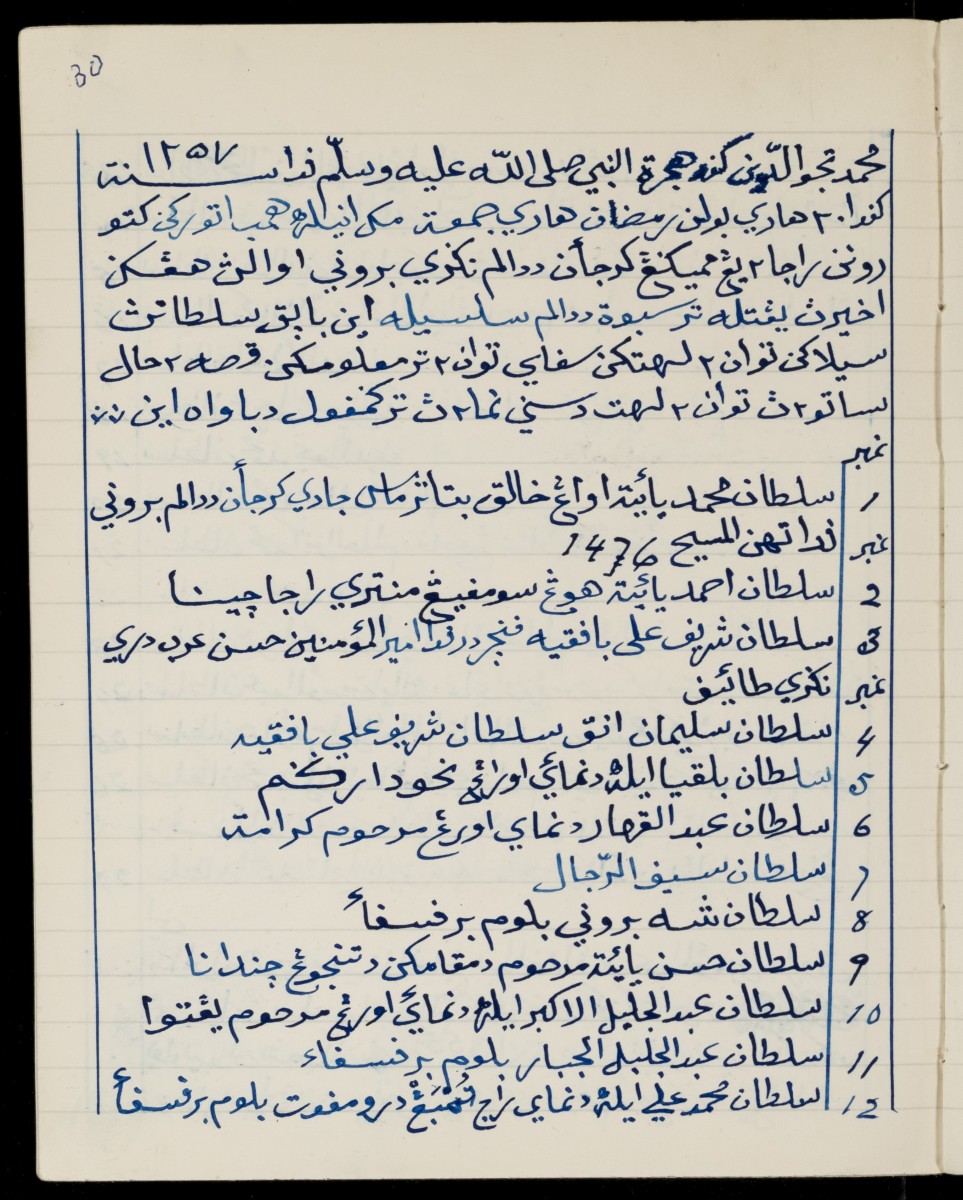 30
محمد تجو الدّين كفد هجرة النبي صلى اللّه عليه وسلّم ڤدا سنة ١٢٥٧
كڤدا ٢٠ هاري بولن رمضان هاري جمعة مك انيله همب اتوركن كتو
رونن راجا٢ يڠ مميكڠ كرجأن ددالم نكري بروني اوالڽ هڠݢن
اخيرڽ يڠتله ترسبوة ددالم سلسيله اين بارڠ سلطانڽ
سيلاكن توان٢ لهتكن سڤاي توان٢ تر معلومكن قصه٢ حال
ساتو٢ڽ توان٢ لهت دسني نما٢ڽ تركمڤول دباواه اين
نمبر
1 سلطان محمد يائيتة اواڠ خالق بتاتر ماس جادي كرجأن ددالم بروني
نمبر ڤدا تاهن المسيح 1476
2 سلطان احمد يائيتة هوڠ سومڤيڠ منتري راجا چينا
3 سلطان شريف علي بافقيه ڤنجر درڤدا امير المؤمنين حسن عرب دري
نمبر نكري طائيف
4 سلطان سليمان انق سلطان شريف علي بافقيه
5 سلطان بلقيا ايله دنمائي اورڠ نخودا راݢم
6 سلطان عبد القهار دنماي اورڠ مرحوم كرامة
7 سلطان سيف الرّجال
8 سلطان شه بروني بلوم برڤسڤأ
9 سلطان حسن يائيتة مرحوم دمقامكن دتنجوڠ چندانا
10 سلطان عبد الجليل الاكبر ايله دنمائي اورڠ مرحوم يڠتوا
11 سلطان عبد الجليل الجبار بلوم برڤسڤاء
12 سلطان محمد علي ايله دنماي راج تُمْبَڠْ درومڤوت بلوم برڤسڤأ